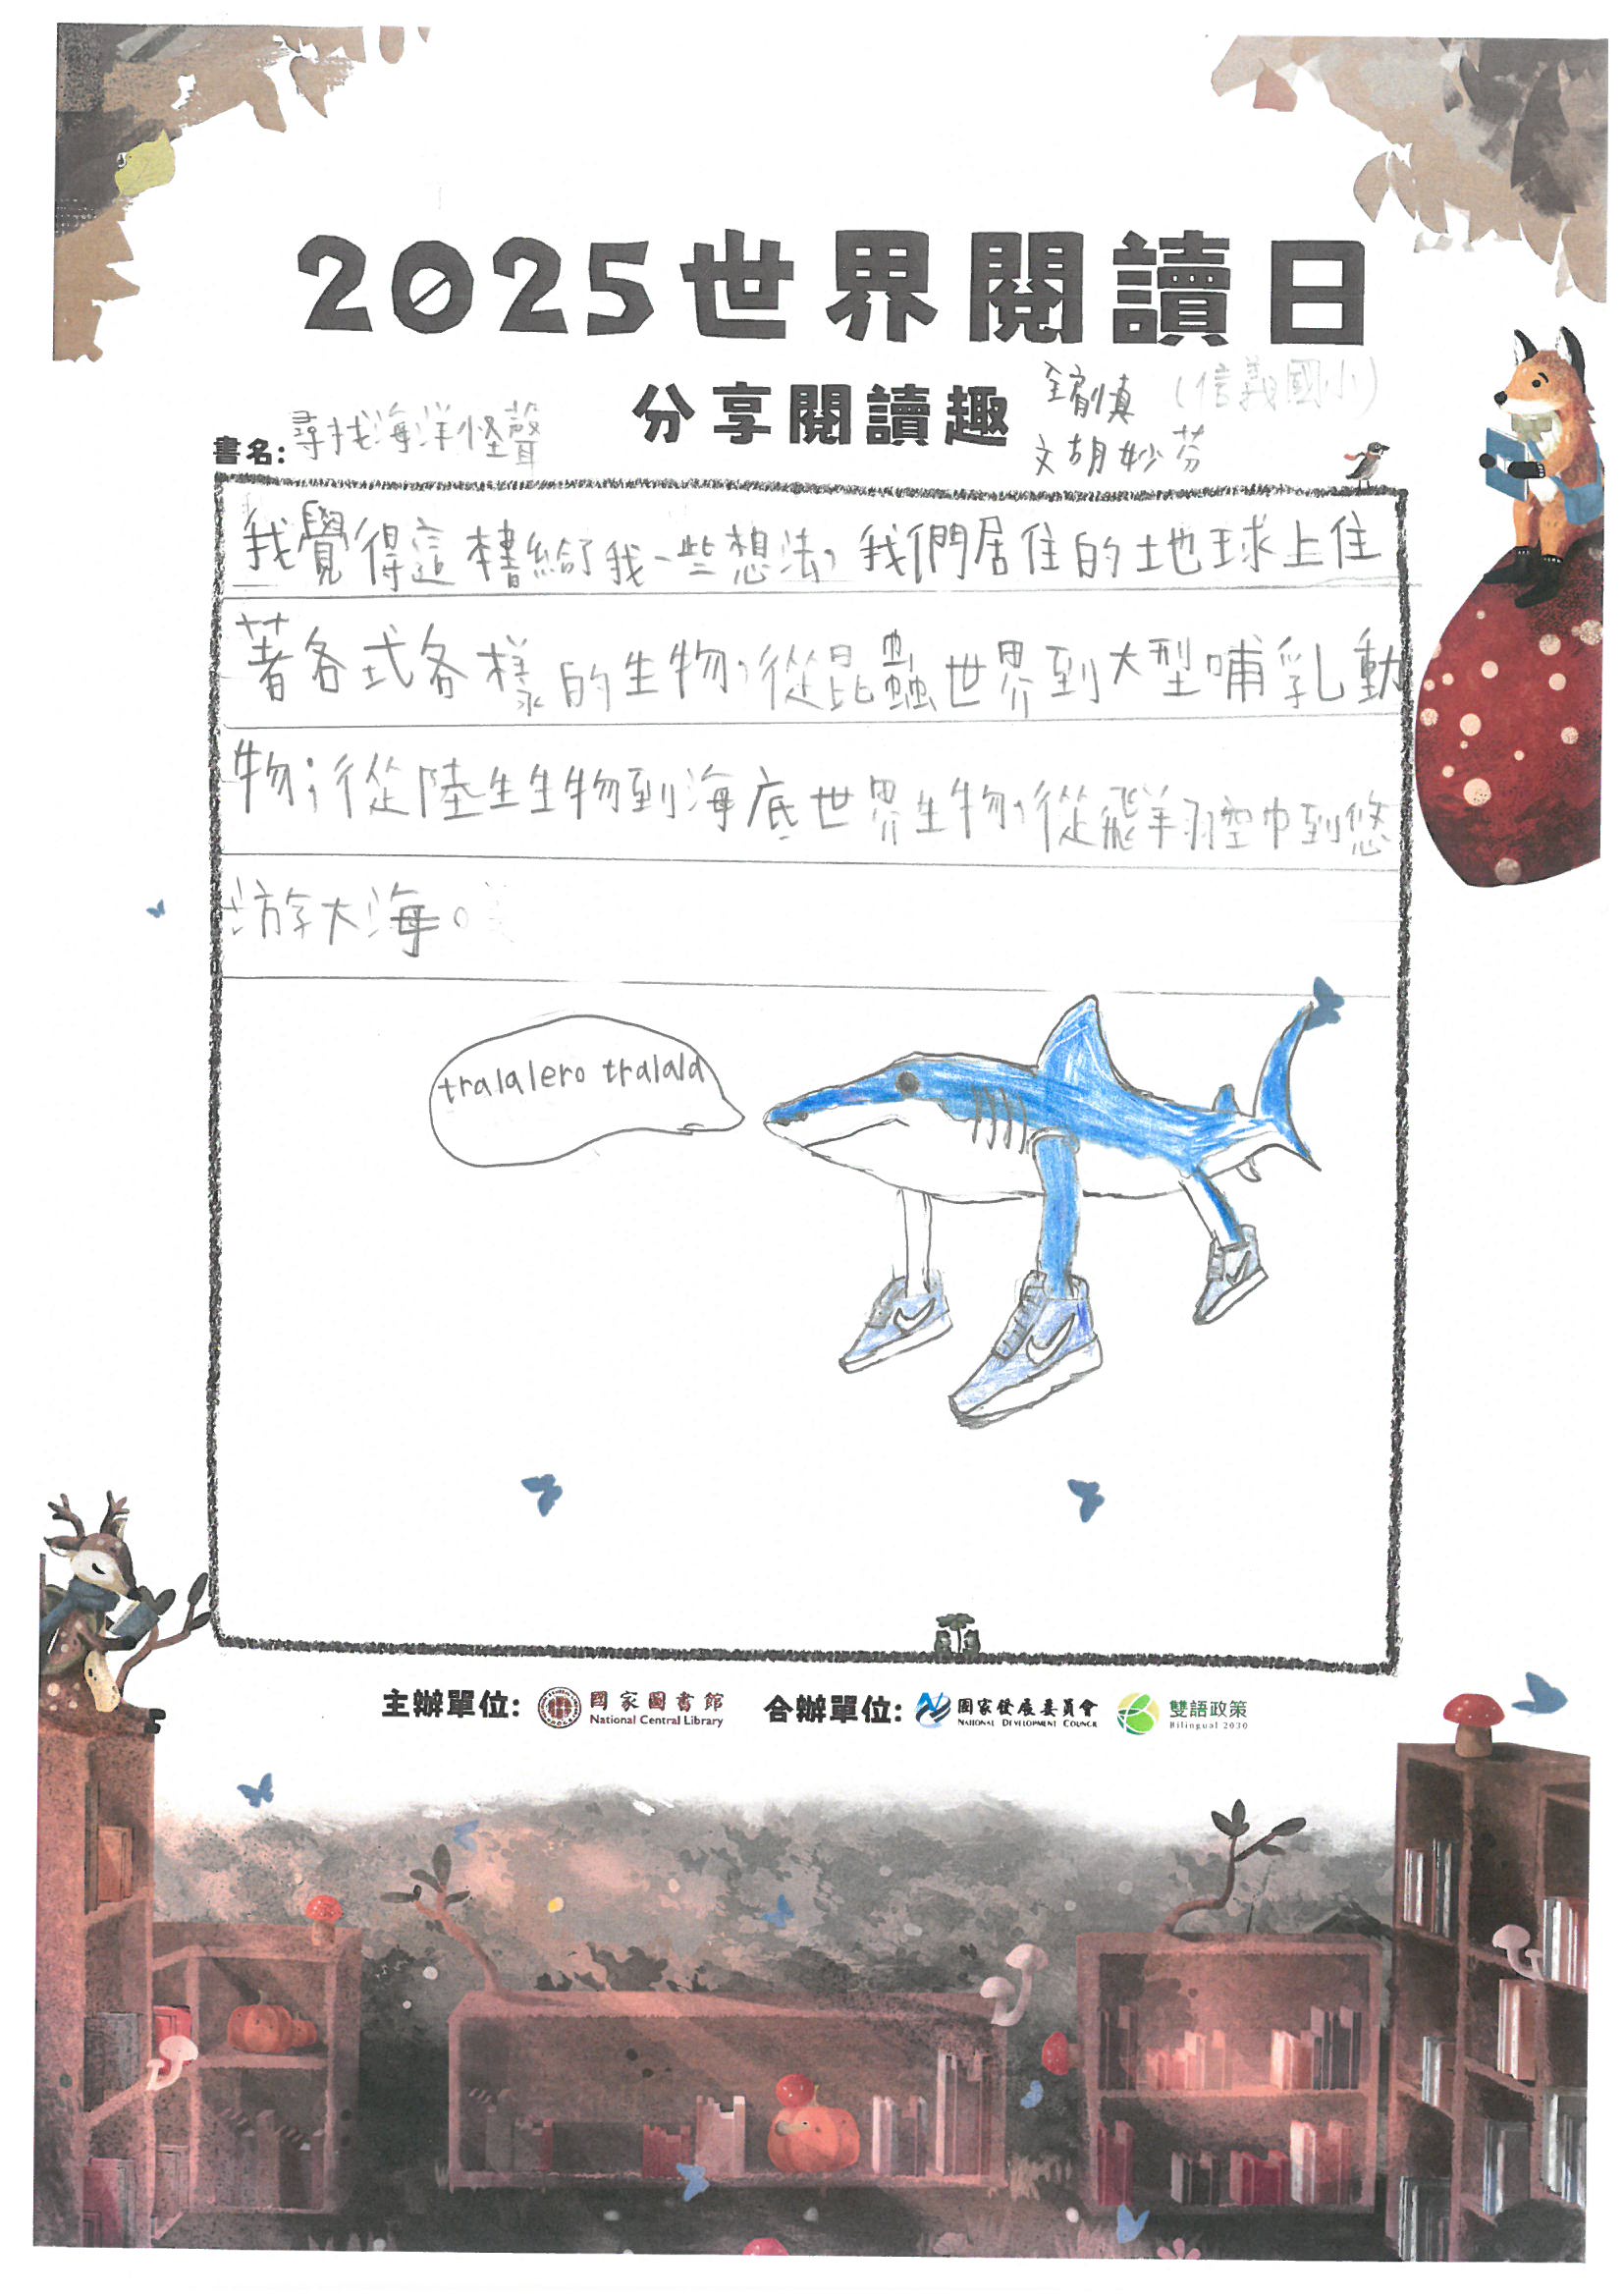 2025世界閱讀日
分享閱讀趣
(信義國小)
文胡妙芬
書名:尋找海洋怪聲
我覺得這本書給了我一些想法,我們居住的地球上住
著各式各樣的生物,從昆蟲世界到大型哺乳動
物;從陸生生物到海底世界生物,從飛翔空中到悠
游大海。
tralalero tralala
主辦單位: 國家圖書館 合辦單位: 國家發展委員會 雙語政策
National Central Library NATIONAL DEVELOPMENT COUNCIL Bilingual 2030